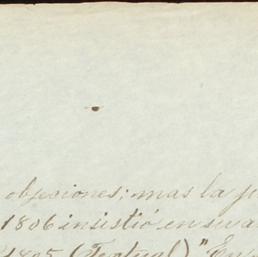 objeciones; mas la
1806 insistió en su
1805 (Textual) "En